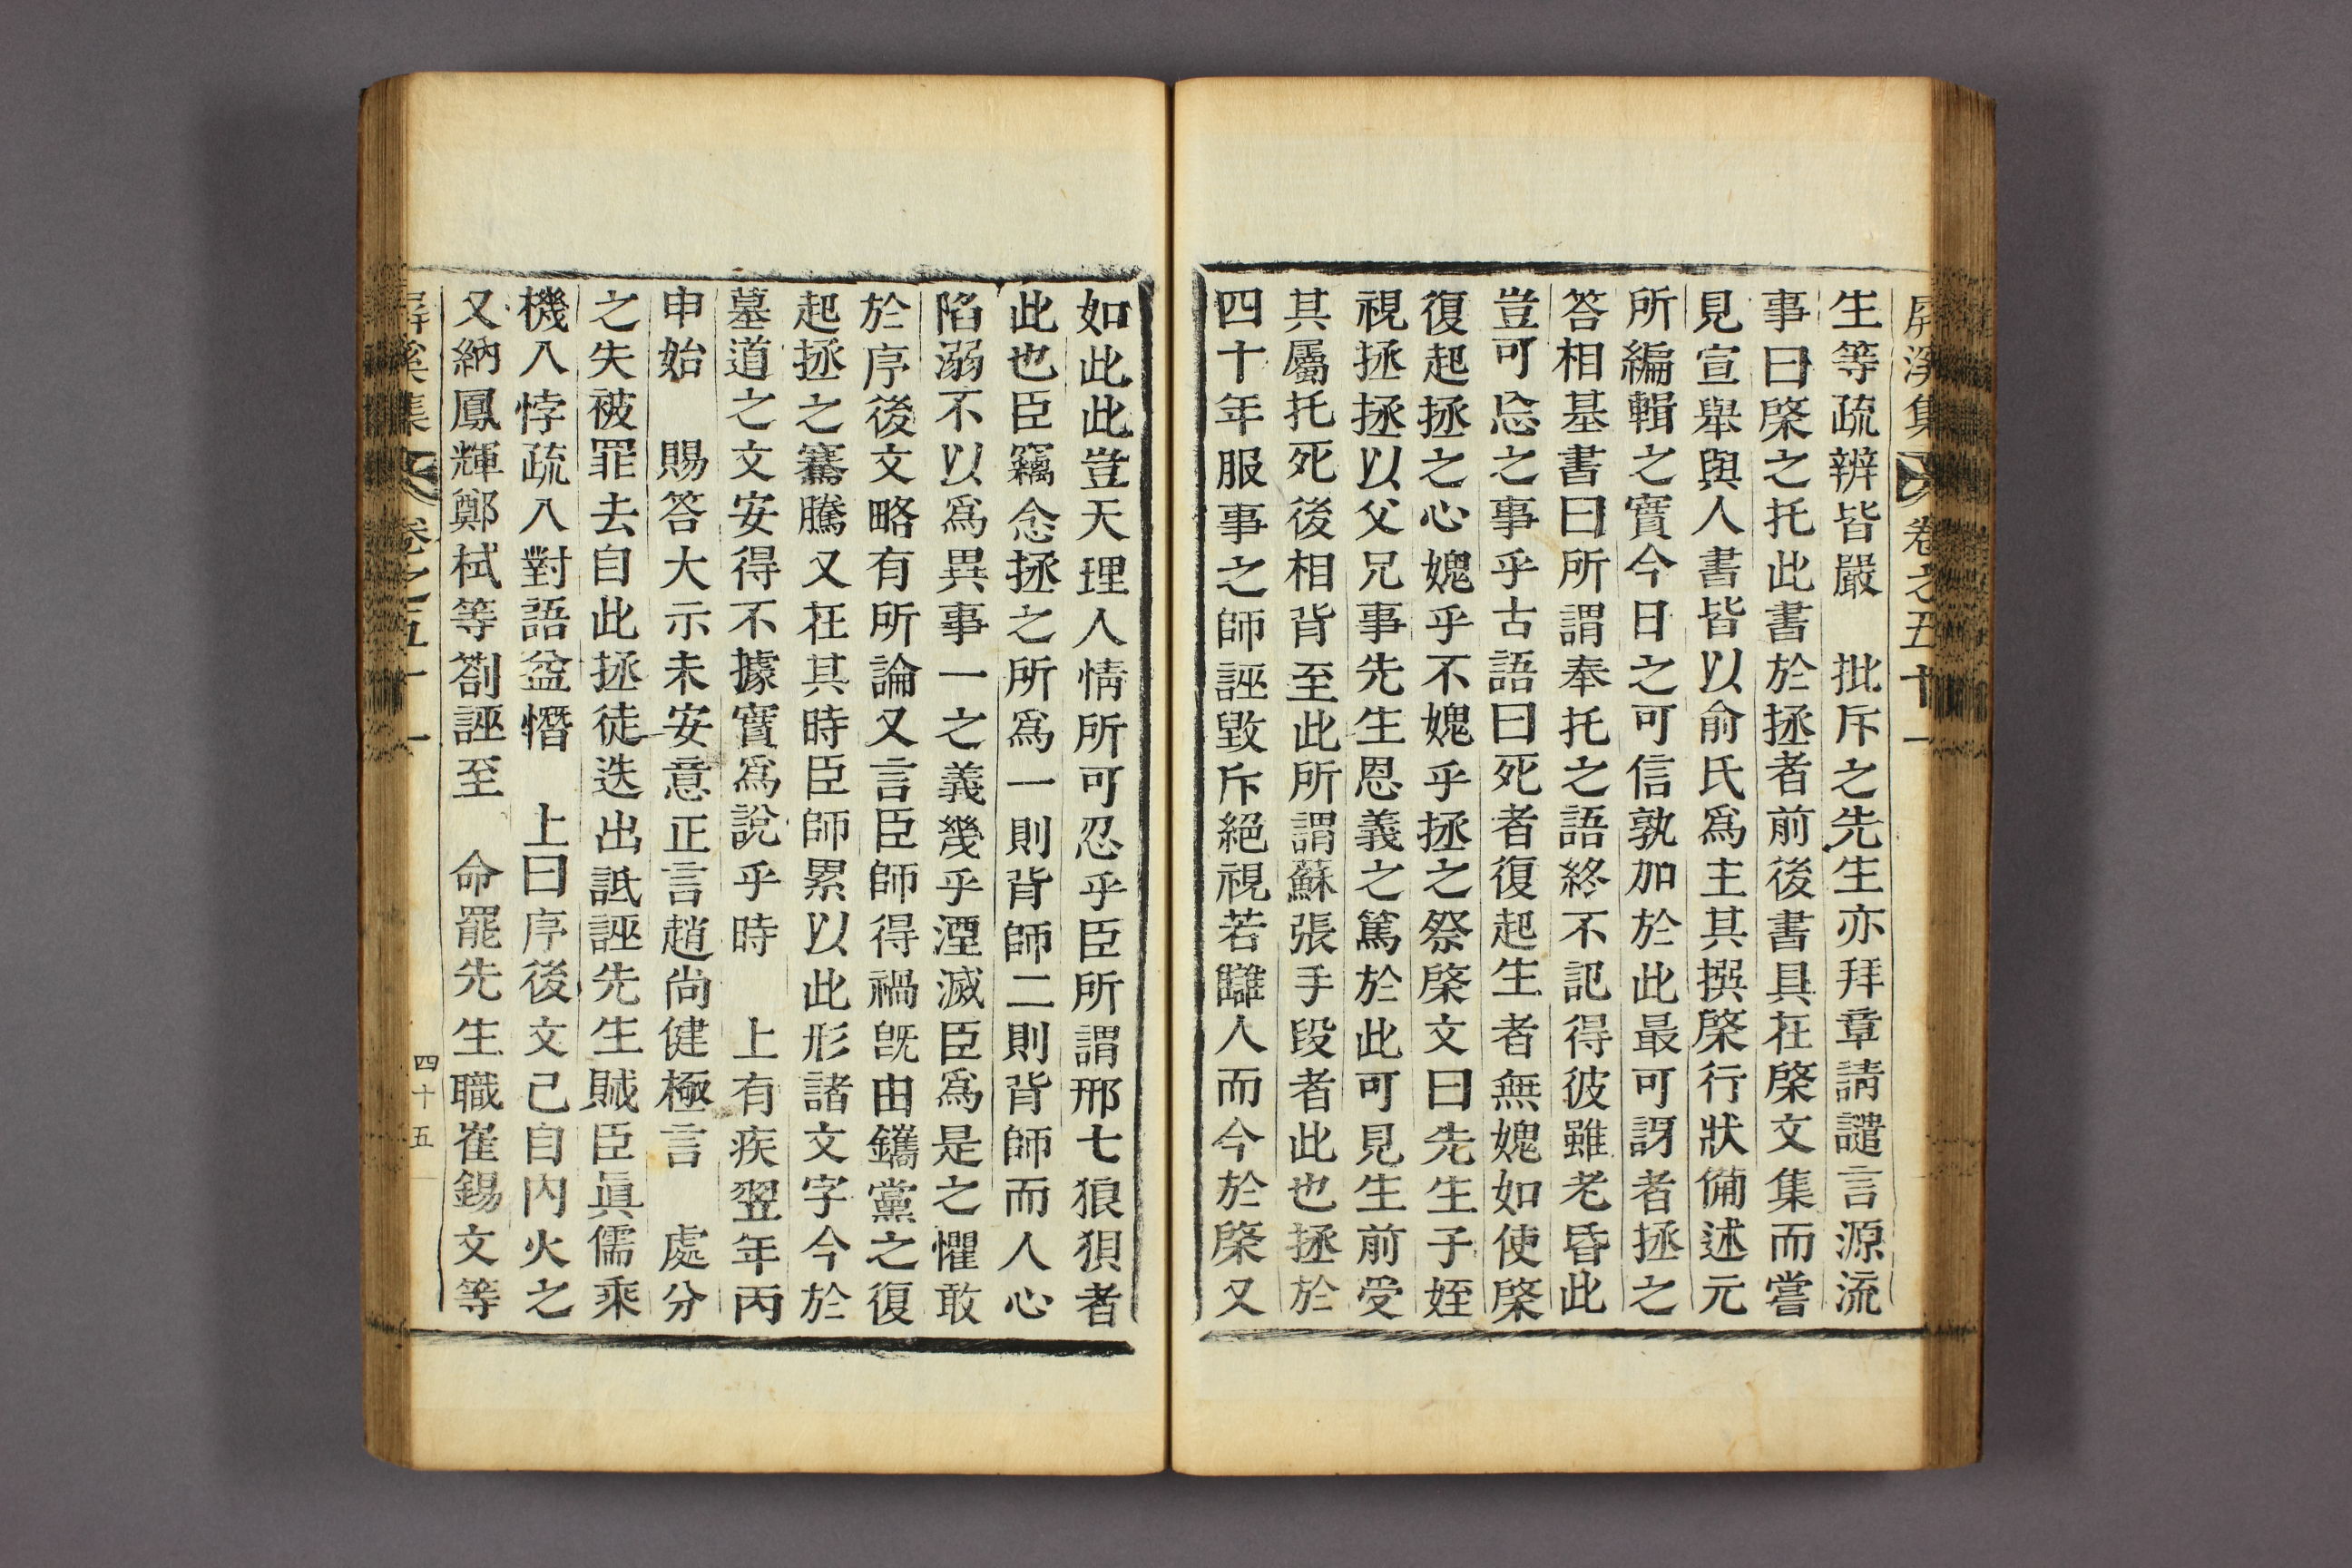 屏溪集 卷之五十一
生等疏辨皆嚴 批斥之先生亦拜章請譴言源流
事曰棨之托此書於拯者前後書具在棨文集而嘗
見宣舉與人書皆以俞氏爲主其撰棨行狀備述元
所編輯之實今日之可信孰加於此最可訝者拯之
答相基書曰所謂奉托之語終不記得彼雖老昏此
豈可忘之事乎古語曰死者復起生者無媿如使棨
復起拯之心媿乎不媿乎拯之祭棨文曰先生子姪
視拯拯以父兄事先生恩義之篤於此可見生前受
其屬托死後相背至此所謂蘇張手段者此也拯於
四十年服事之師誣毀斥絕視若讎人而今於棨又
如此此豈天理人情所可忍乎臣所謂邢七狼狽者
此也臣竊念拯之所爲一則背師二則背師而人心
陷溺不以爲異事一之義幾乎湮滅臣爲是之懼敢
於序後文略有所論又言臣師得禍旣由鑴黨之復
起拯之騫騰又在其時臣師累以此形諸文字今於
墓道之文安得不據實爲說乎時 上有疾翌年丙
申始 賜答大示未安意正言趙尙健極言 處分
之失被罪去自此拯徒迭出詆誣先生賊臣眞儒乘
機入悖疏入對語益憯 上曰序後文己自內火之
又納鳳輝鄭栻等劄誣至 命罷先生職崔錫文等
屏溪集 卷之五十一 四十五